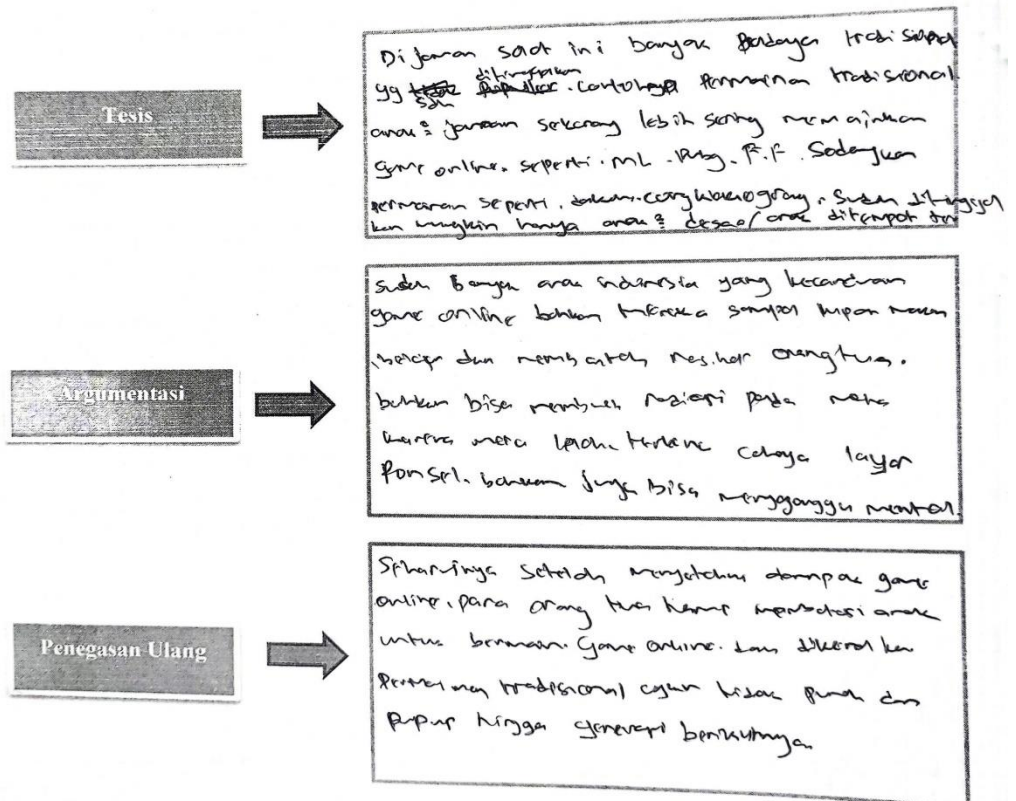 Tesis
Di jaman saat ini banyak budaya tradisional
yg sdh ditinggalkan. contohnya Permainan tradisional.
anak² jaman sekarang lebih sering memainkan
game online. seperti. ML. Pubg. F.F. Sedangkan
permainan seperti. dakon. Sudah ditinggal
kan mungkin hanya anak² desa / anak ditempat
Argumentasi
sudah Banyak anak indonesia yang kecanduan
game online bahkan mereka sampai lupa makan
belajar dan membantah nasihat orangtua.
bahkan bisa membuat pada mata
karena mata terkena cahaya layar
Ponsel. bahkan juga bisa mengganggu mental.
Penegasan Ulang
Seharusnya Setelah mengetahui dampak game
online, para orang tua harus membatasi anak
untuk bermain. Game online. dan dikenalkan
Permainan tradisional agar tidak punah dan
hingga generasi berikutnya